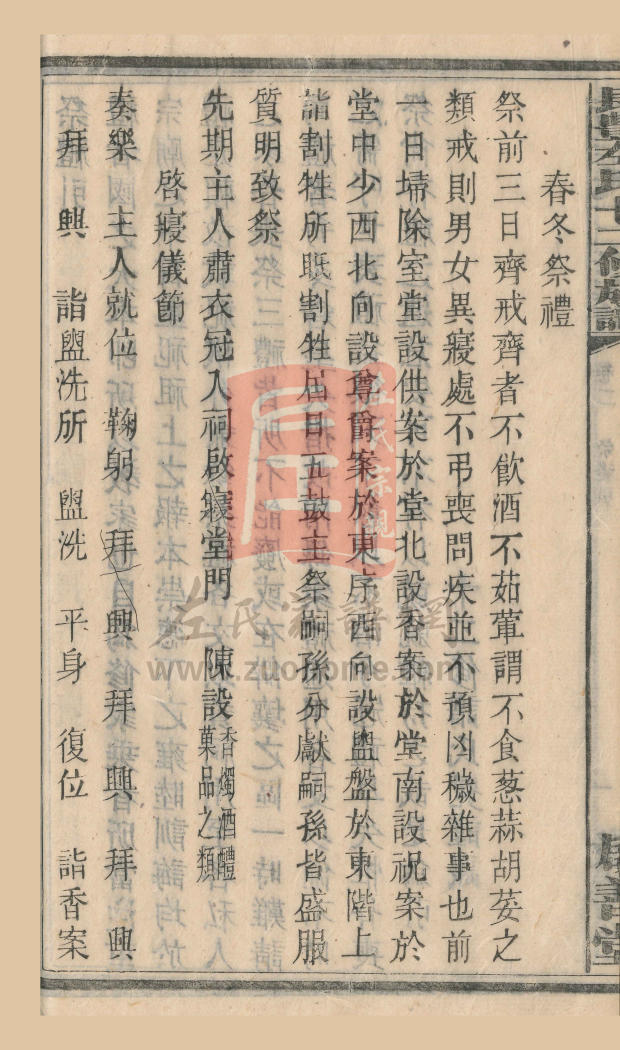 春冬祭禮
祭前三日齊戒齊者不飲酒不茹葷謂不食葱蒜胡荽之
類戒則男女異寢處不弔喪問疾並不預凶穢雜事也前
一日埽除室堂設供案於堂北設香案於堂南設祝案於
堂中少西北向設尊爵案於東序西向設盥盤於東階上
詣割牲所眂割牲屆日五鼓主祭嗣孫分獻嗣孫皆盛服
質明致祭
啓寢儀節
先期主人肅衣冠入祠啟寢堂門 陳設香燭酒醴菓品之類
奏樂 主人就位 鞠躬 拜 興 拜 興 拜 興
拜 興 詣盥洗所 盥洗 平身 復位 詣香案
左氏宗親
左氏家譜網
www.zuohome.com